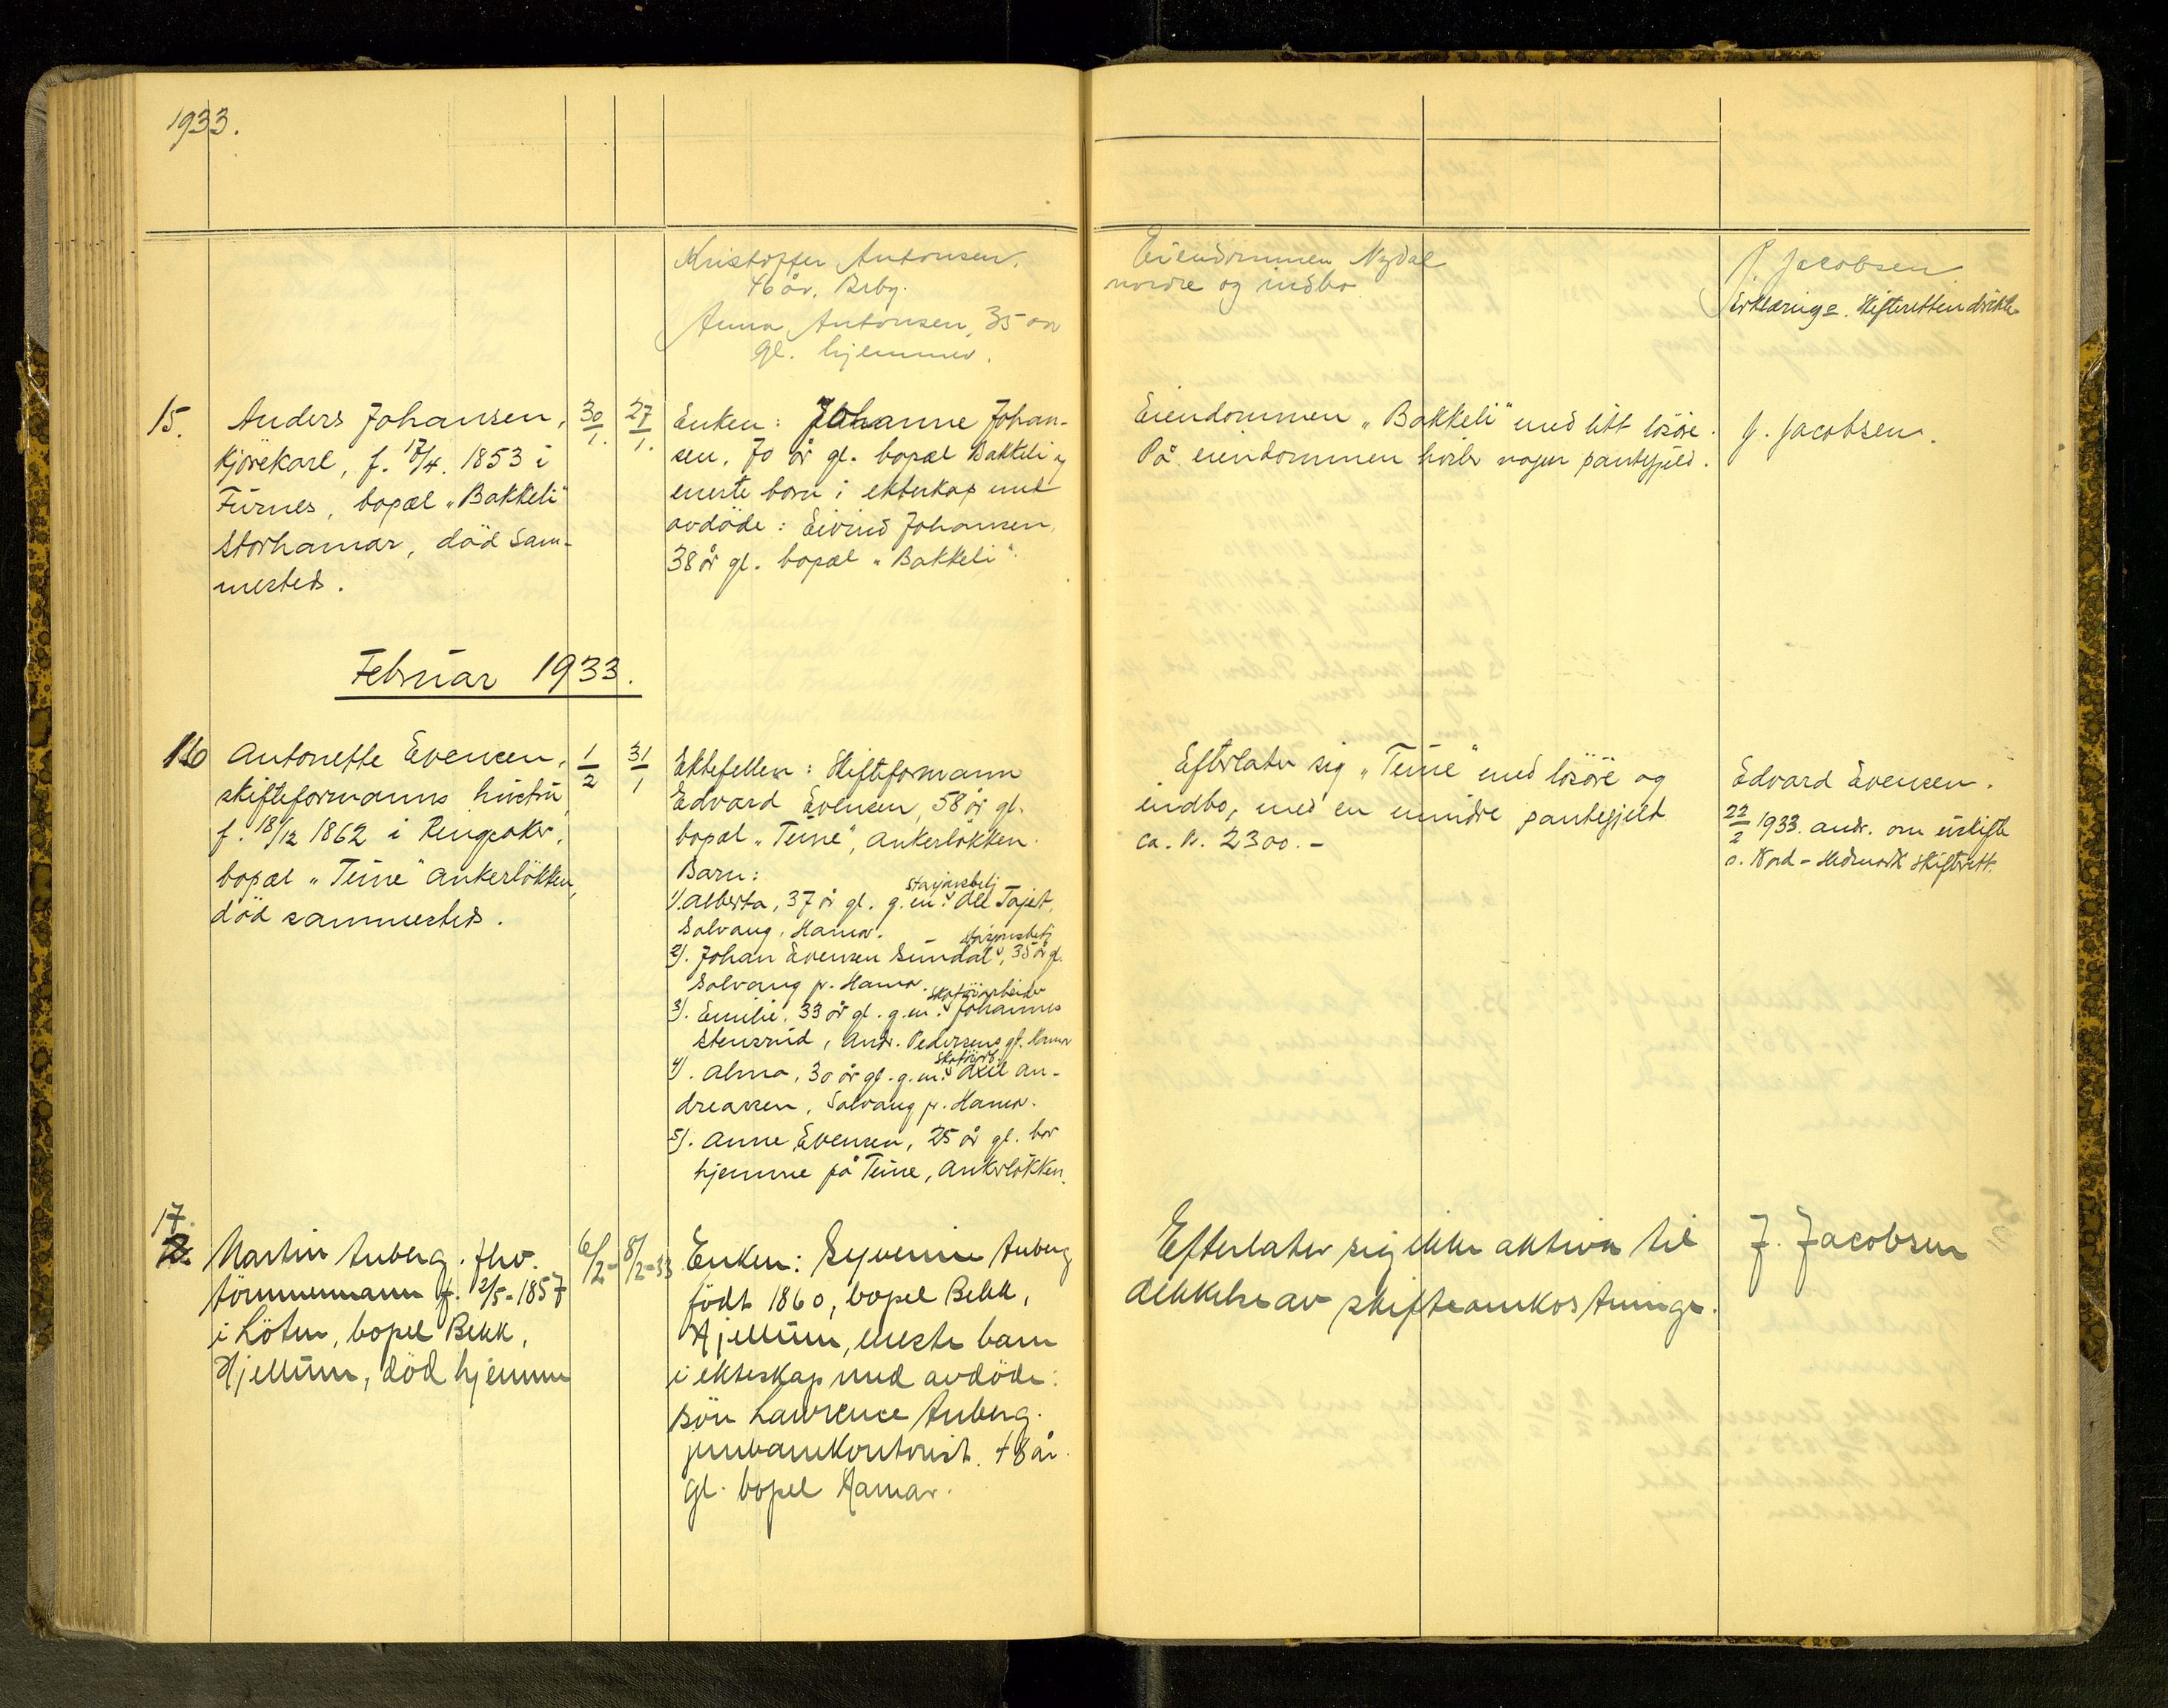 1933.
Kristoffer Antonsen,
46 år, Brby.
Anna Antonsen, 35 år
gl. hjemmev.
Eiendommen Nydal
nordre og indbo
J. Jacobsen
Erklæring s. Skifteretten direkte
15.
Anders Johansen,
kjörekarl, f. 17/4. 1853 i
Furnes, bopæl „Bakkeli"
Storhamar, död sam-
mesteds.
30/1.
27/1.
Enken: Johanne Johan-
sen, 70 år gl. bopæl Bakkeli og
eneste barn i ekteskap med
avdöde: Eivind Johansen,
38 år gl. bopæl „Bakkeli".
Eiendommen „Bakkeli" med litt lösöre.
På eiendommen hviler nogen pantegjeld.
J. Jacobsen.
Februar 1933.
16
Antonette Evensen,
skifteformanns hustru,
f. 18/12 1862 i Ringsaker,
bopæl „Teine" Ankerlökken,
död sammesteds.
1/2
31/1
Ektefellen: Skifteformann
Edvard Evensen, 58 år gl.
bopæl „Teine", Ankerlökken.
Barn:
1). Alberta, 37 år gl. g.m. stasjonsbetj Ole Tajet,
Solvang, Hamar.
2). Johan Evensen Sundal, stasjonsbetj, 35 år gl.
Solvang pr. Hamar.
3). Emilie, 33 år gl. g.m. skotöiarbeider Johannes
Stensrud, Andr. Pedersens gt. Hamar
4). Alma, 30 år gl. g.m. skotöiarb. Axel An-
dreassen, Solvang pr. Hamar.
5). Anne Evensen, 25 år gl. bor
hjemme på Teine, Ankerlökken.
Efterlater sig „Teine" med lösöre og
indbo, med en mindre pantegjeld
ca. kr. 2300.-
Edvard Evensen.
22/2 1933. andr. om uskifte
s. Nord-Hedmark Skifterett.
17.
Martin Auberg. fhv.
tömmermann f. 12/5-1857
i Löten, bopel Bekk,
Hjellum, död hjemme
6/2-
8/2-33
Enken: Syverine Auberg
födt 1860, bopel Bekk,
Hjellum, eneste barn
i ekteskap med avdöde:
sön Lawrence Auberg.
jernbanekontorist. 48 år.
gl. bopel Hamar.
Efterlater sig ikke aktiva til
dekkelse av skifteomkostninger.
J. Jacobsen